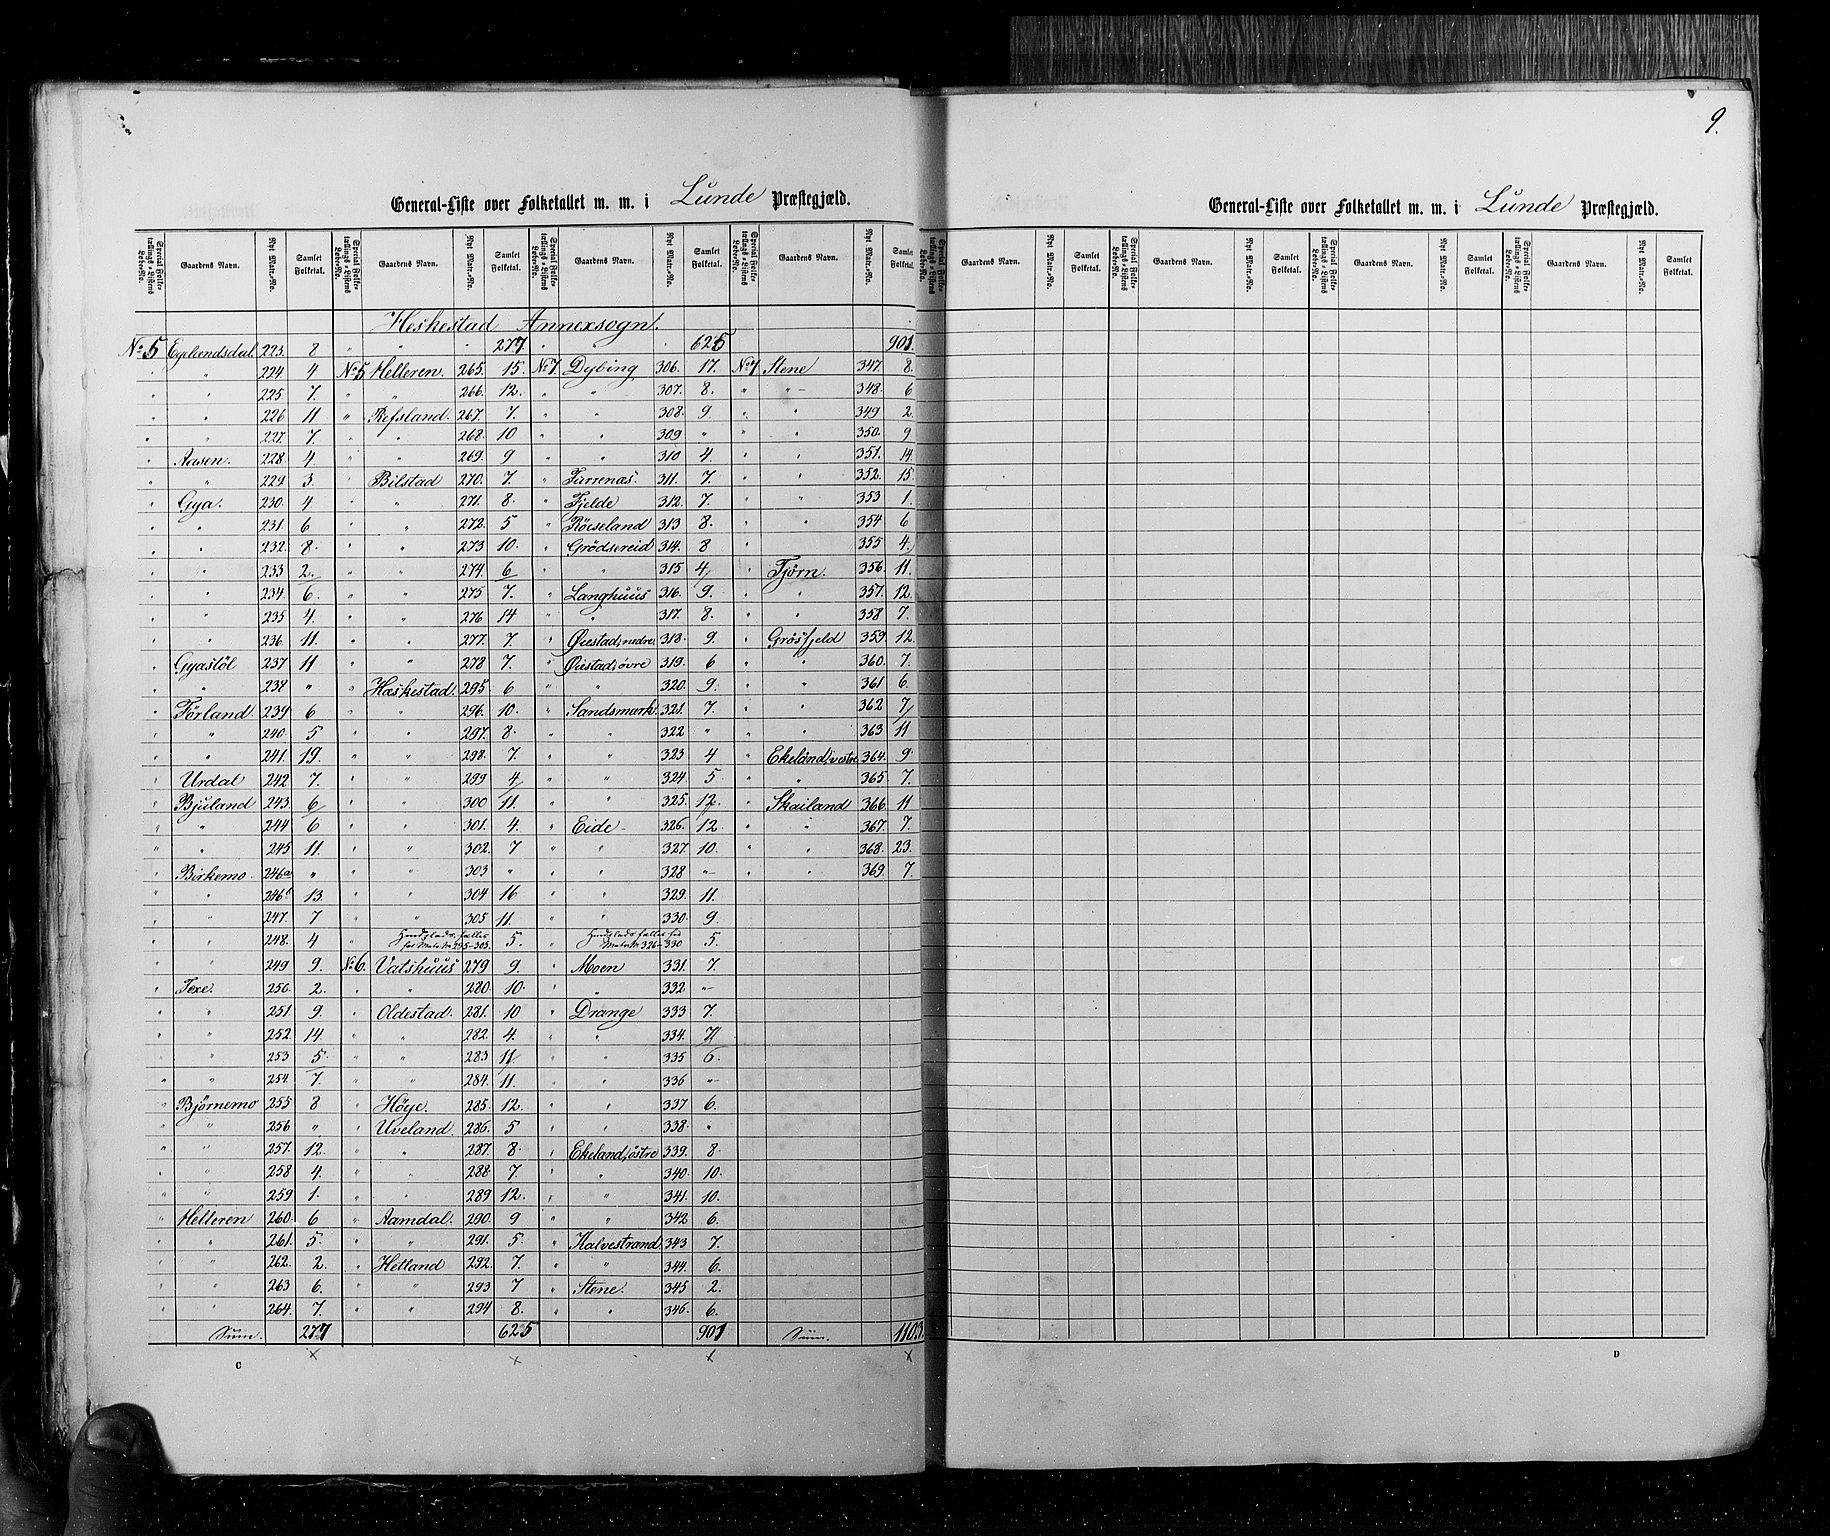 9.
General-Liste over Folketallet m. m. i Lunde Præstegjæld.
General-Liste over Folketallet m. m. i Lunde Præstegjæld.
Special Folketællings-Listens Løbe-No. Gaardens Navn. Nyt Matr.-No. Samlet Folketal. Special Folketællings-Listens Løbe-No. Gaardens Navn. Nyt Matr.-No. Samlet Folketal. Special Folketællings-Listens Løbe-No. Gaardens Navn. Nyt Matr.-No. Samlet Folketal. Special Folketællings-Listens Løbe-No. Gaardens Navn. Nyt Matr.-No. Samlet Folketal.
Heskestad Annexsogn.
No 5 223. 8 " " " 277 " " " 625 901.
" " 224 4 No 5 Helleren. 265. 15. No 7 Dybing 306. 17. No 7 Stene 347. 8.
" " 225 7. " " 266. 12. " " 307. 8. " " 348. 6
" " 226 11 " Refsland. 267. 7. " " 308. 9 " " 349 2.
" " 227. 7. " " 268. 10 " " 309 " " " 350. 9
" Aasen. 228. 4. " " 269. 9 " " 310 4. " " 351. 14.
" " 229 3. " Bilstad 270. 7. " Turrenæs. 311. 7. " " 352. 15.
" Gya. 230. 4 " " 271. 8. " Fjelde 312. 7. " " 353 1.
" " 231. 6 " " 272. 5 " Röiseland 313 8. " " 354 6
" " 232. 8. " " 273 10. " Grödsereid 314. 8 " " 355 4.
" " 233 2. " " 274. 6 " " 315 4. " Tjörn. 356. 11.
" " 234. 6. " " 275 7. " Langhuus 316. 9. " " 357. 12.
" " 235 4. " " 276 14 " " 317. 8. " " 358 7.
" " 236. 11. " " 277. 7. " Øiestad, nedre 318. 9. " Grösfjeld 359. 12.
" Gyastöl 237 11 " " 278 7. " Øiestad, övre 319. 6 " " 360. 7.
" " 238 " " Hæskestad. 295. 6 " " 320. 9. " " 361 6.
" Förland. 239 6 " " 296. 10. " Sandsmark. 321. 7. " " 362 7.
" " 240. 5 " " 297. 8. " " 322 " " " 363 11
" " 241. 19. " " 298. 7. " " 323 4 " Ekeland, vestre 364. 9
" Urdal 242 7. " " 299 4. " " 324. 5 " " 365 7.
" Bjuland 243. 6 " " 300 11. " " 325. 12. " Skailand 366. 11
" " 244 6 " " 301. 4. " Eide 326. 12 " " 367. 7.
" " 245 11. " " 302. 7 " " 327. 10. " " 368. 23.
" Birkemo 246a " " " 303 " " " 328 " " " 369. 7.
" " 246b 13. " " 304 16 " " 329. 11.
" " 247. 7 " " 305 11. " " 330. 9.
" " 248. 4 " Matr. No 295-305. 5. " Matr. No 326-330 5.
" " 249 9. No 6. Vatshuus 279 9. " Moen 331. 7.
" Texe. 250. 2. " " 280. 10. " " 332 "
" " 251 9. " Oldestad. 281. 10 " Drange 333 7.
" " 252. 14. " " 282. 4. " " 334. 7.
" " 253 5. " " 283 11. " " 335 6.
" " 254. 7. " " 284. 11. " " 336 "
" Björnemo 255 8 " Höye. 285. 12. " " 337 6.
" " 256 " " Uveland. 286. 5 " " 338. "
" " 257. 12. " " 287. 8. " Ekeland, östre 339. 8.
" " 258 4. " " 288. 7. " " 340. 10.
" " 259 1. " " 289 12. " " 341. 10.
" Helleren 260. 6 " Aamdal. 290. 9 " " 342 6.
" " 261. 5. " " 291. 5. " Kalvestrand 343 7.
" " 262. 2. " Hetland 292. 7. " " 344. 6.
" " 263 6. " " 293 7 " Stene. 345 2.
" " 264. 7. " " 294 8. " " 346. 6.
Sum. 277 625 901 Sum. 1103.
C
Special Folketællings-Listens Løbe-No. Gaardens Navn. Nyt Matr.-No. Samlet Folketal. Special Folketællings-Listens Løbe-No. Gaardens Navn. Nyt Matr.-No. Samlet Folketal. Special Folketællings-Listens Løbe-No. Gaardens Navn. Nyt Matr.-No. Samlet Folketal. Special Folketællings-Listens Løbe-No. Gaardens Navn. Nyt Matr.-No. Samlet Folketal.
D